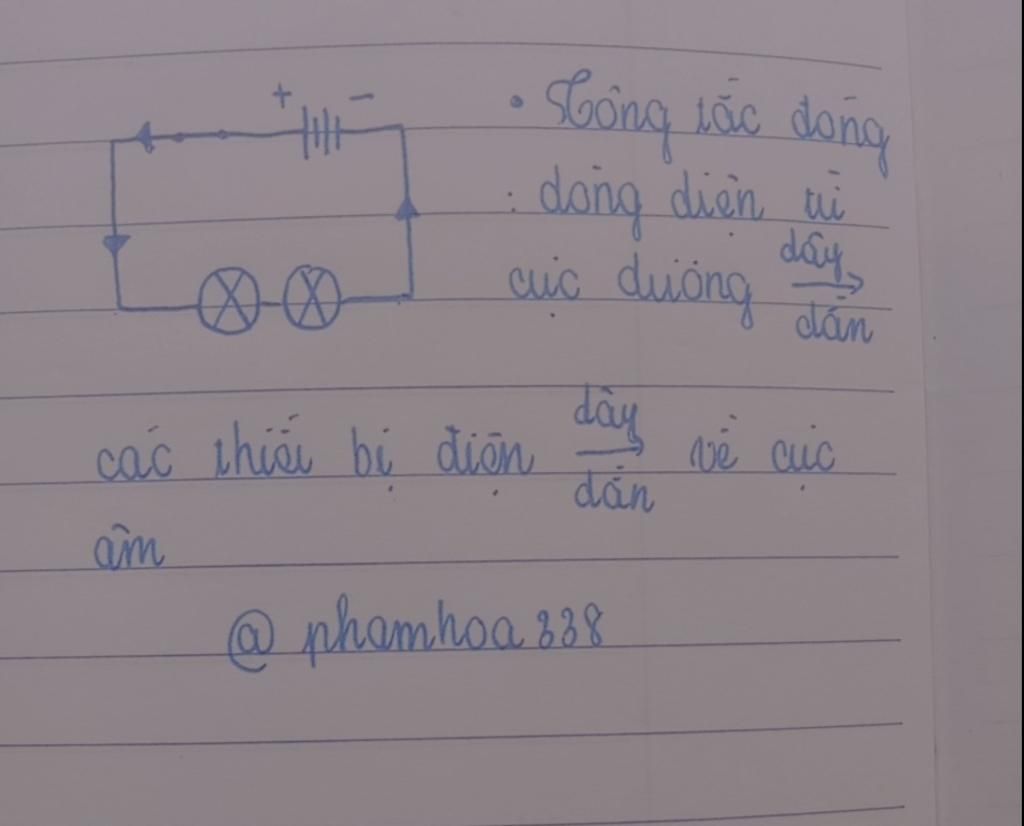 + -
• Công tắc đóng
: dòng điện từ
cực dương dây dẫn →
các thiết bị điện dây dẫn → về cực
âm
@ phamhoa338